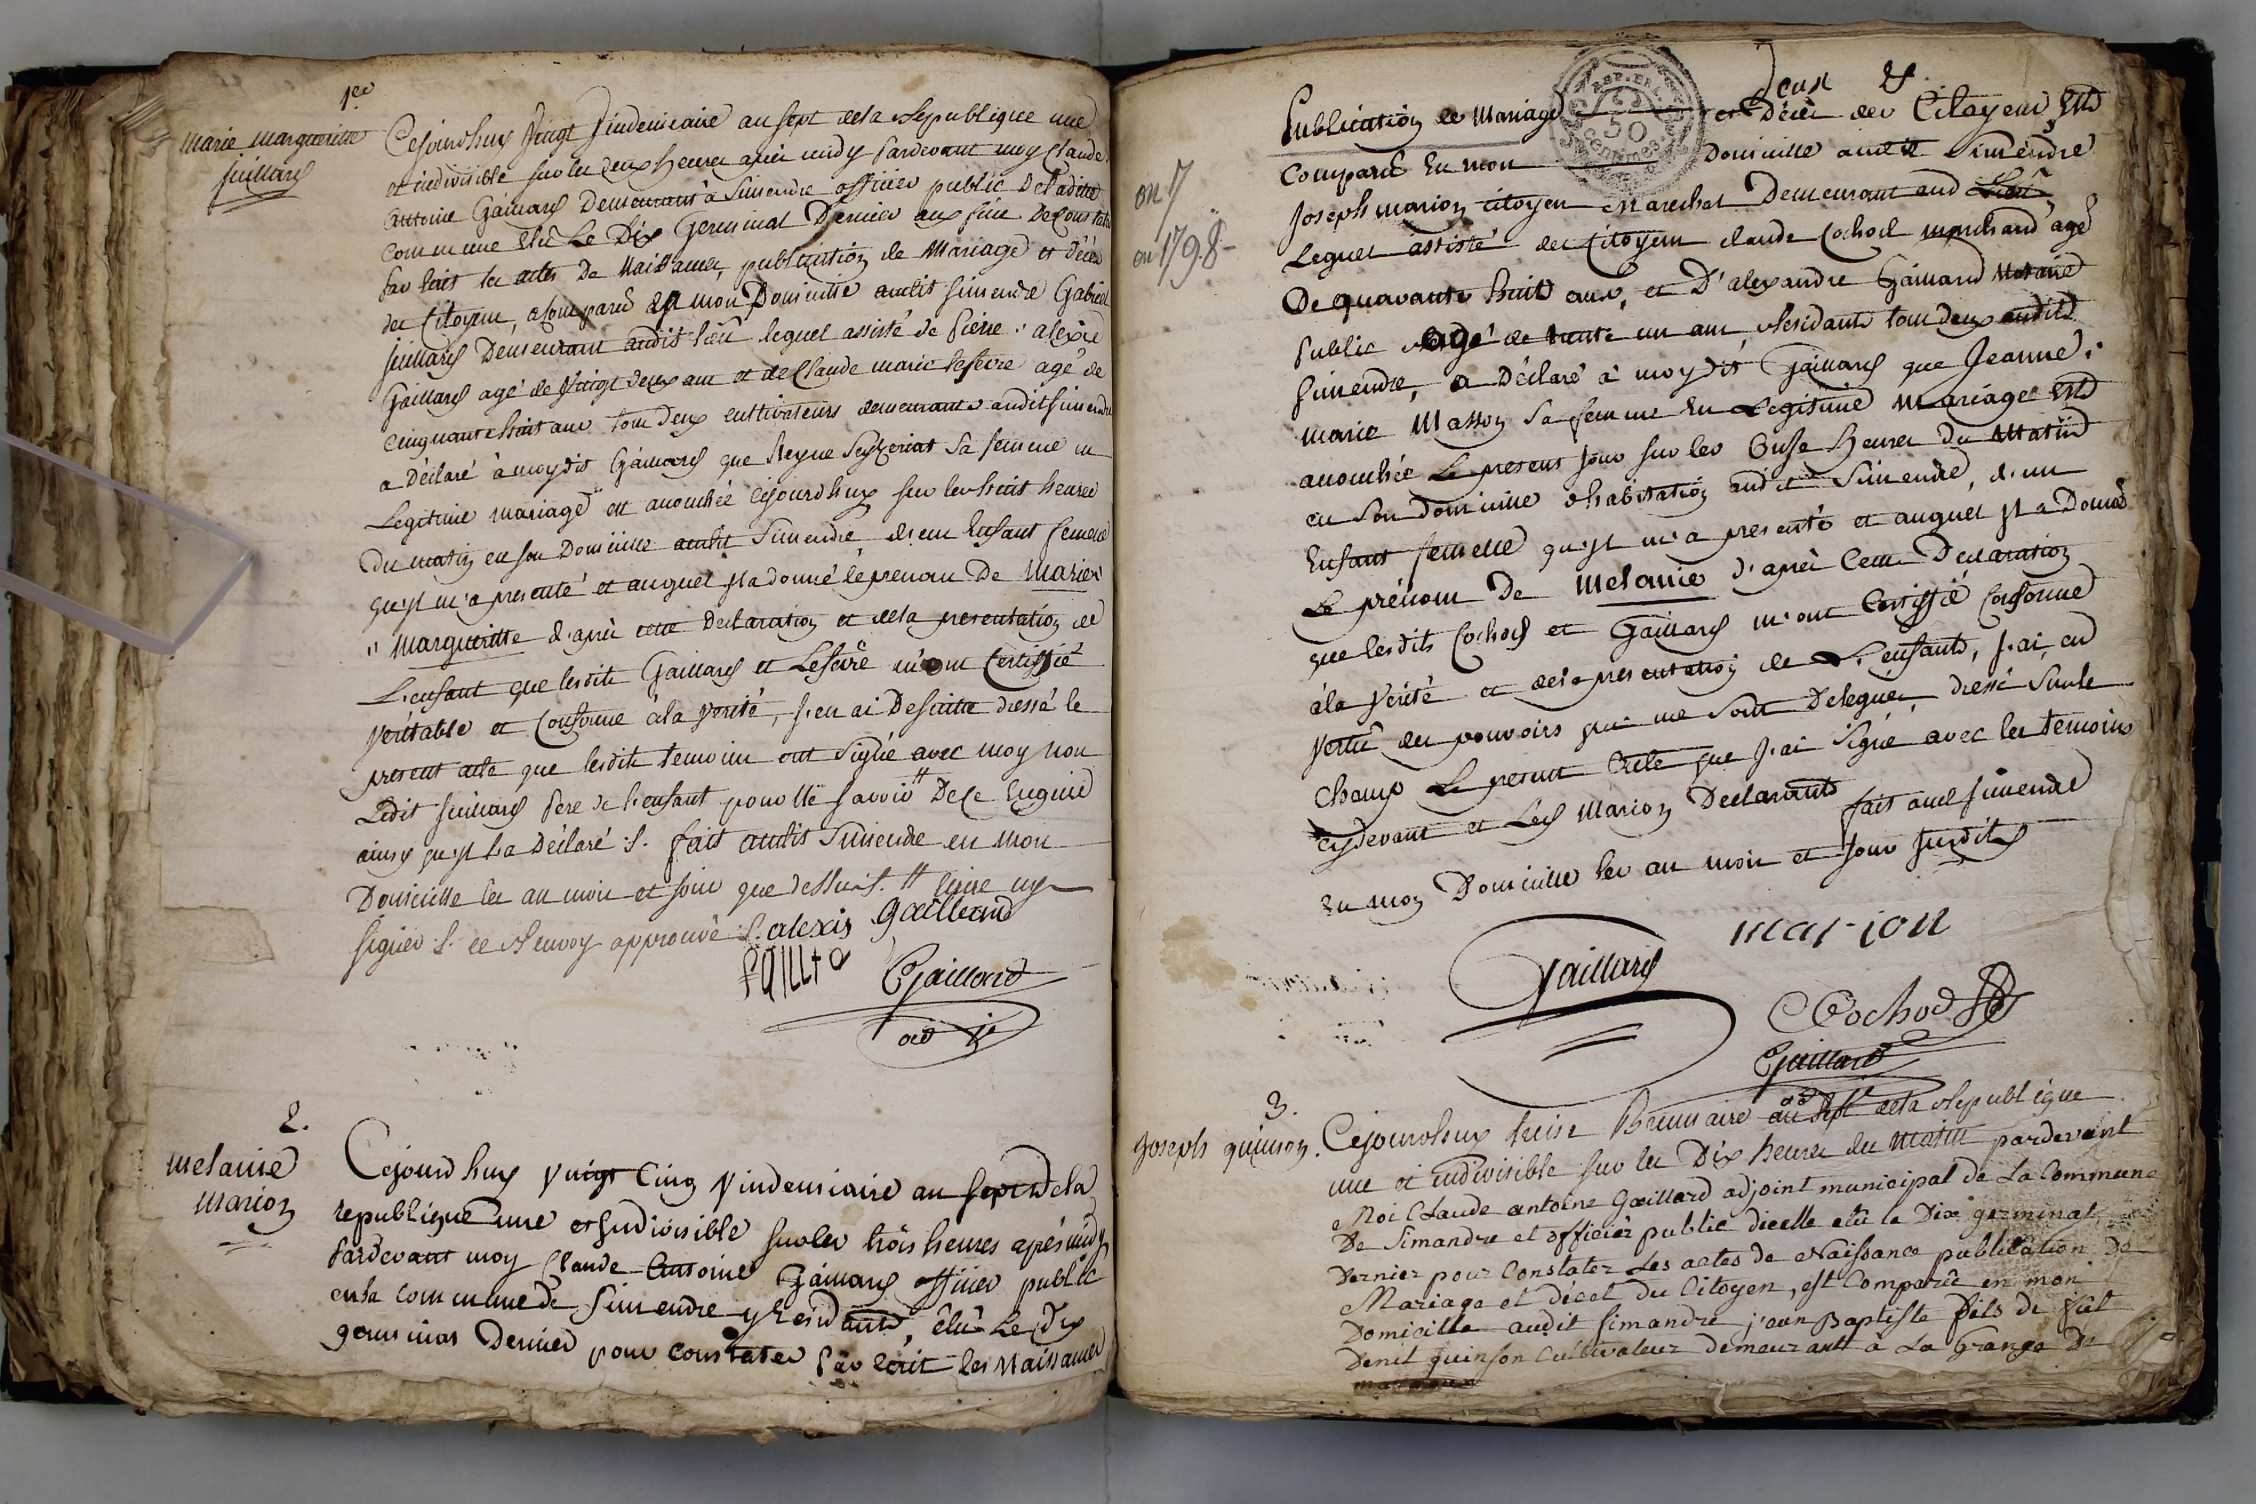 1ere
marie margueritte
juillard
Cejourdhuy Vingt Vindemiaire an sept dela Republique une
et indivisible sur les deux heures apres midy Pardevant moy Claude
antoine Gaillard Demeurant à Simendre officier public De ladite
commune Elû Le Dix Germinal Dernier aux fins De Constater
par Ecrit les actes De Naissances, publication de Mariage et Décès
des Citoyens, a Comparû En mon Domicille audit simendre Gabriel
juillard Demeurant audit lieu lequel assisté de Pierre alexis
Gaillard agé de Vingt deux ans et de Claude marie lefevre agé de
cinquante huit ans tous deux cultivateurs demeurants audit simendre
a Déclaré à moy dit Gaillard que Reyne sa femme en
Legitime mariage est acouchée cejourdhuy sur les huit heures
Du matin en son Domicille audit Simendre d'un Enfant femelle
qu'il m'a presenté et auquel jl a donné le prenom De Marie
" Margueritte d'apres cette Declaration et dela presentation de
L'enfant que lesdits Gaillard et Lefevre m'ont Certiffié
Véritable et Conforme à la Verité, j'en ai De suitte dressé le
present acte que lesdits temoins ont Signé avec moy non
Ledit juillard Pere de l'enfant pour ne savoir # De ce Enquis
ainsy qu'jl La Déclaré ./. fait audit Simendre en mon
Domicille les an mois et jour que dessus ./. # lirire ny
signer ./. ce Renvoy approuvé ./. alexis gaillard
Gaillard
adj
2.
melanie
marion
Cejourdhuy Vingt Cinq Vindemiaire an sept dela
republique une et Indivisible sur les trois heures après midy
Pardevant moy Claude Antoine Gaillard officier public
en la commune de Simendre y Residant, élû Le Dix
germinal Dernier pour constater Par Ecrit les Naissances
Deux
Publication de Mariage et Décès des Citoyens, Est
Comparû En mon Domicille audit Simendre
Joseph marion citoyen marechal Demeurant aud Lieu
Lequel assisté des Citoyens claude Cochod marchand agé
De quarante huit ans, et D'alexandre Gaillard Notaire
Public agé de trente un ans Residants tous deux audit
Simendre, a Déclaré à moy dit Gaillard que Jeanne
marie Masson sa femme En Legitime Mariage Est
acouchée Le present jour sur les Onse heures Du Matin
en son Domicille d'habitation audit Simendre, d'un
Enfant femelle qu'jl m'a presenté et auquel jl a Donné
Le prénom De Melanie d'après Cette Declaration
que lesdits Cochod et Gaillard m'ont Certiffié Conforme
à la Verité et dela presentation de L'enfant, j'ai, en
Vertû des pouvoirs qui me sont Delegués, dressé sur le
champ Le present Acte que j'ai signé avec les temoins
cydevant et Led Marion Declarant fait aud simendre
En mon Domicille les an mois et jour susdits
marion
Gaillard
Cochod
Gaillard
adj
on 7
ou 1798
3.
joseph quinson.
Cejourdhuy treise Brumaire an sept dela Republique
une et indivisible sur les Dix heures du Matin pardevant
Moi Claude antoine Gaillard adjoint municipal de La Commune
De Simandre et officier public dicelle elû le Dix germinal
dernier pour Constater Les actes de Naissance publication De
Mariage et décet du Citoyen, est Comparû en mon
Domicille audit simandre jean Baptiste fils de fût
Denil quinson Cultivateur demeurant à La Grange De